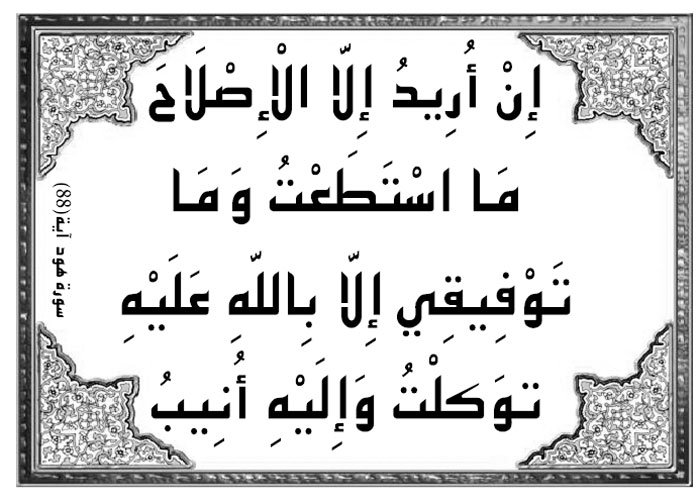 إِنْ أُرِيدُ إِلَّا الْإِصْلَاحَ
مَا اسْتَطَعْتُ وَمَا
تَوْفِيقِي إِلَّا بِاللَّهِ عَلَيْهِ
توَكلْتُ وَإِلَيْهِ أُنِيبُ
سورة هود آية (88)